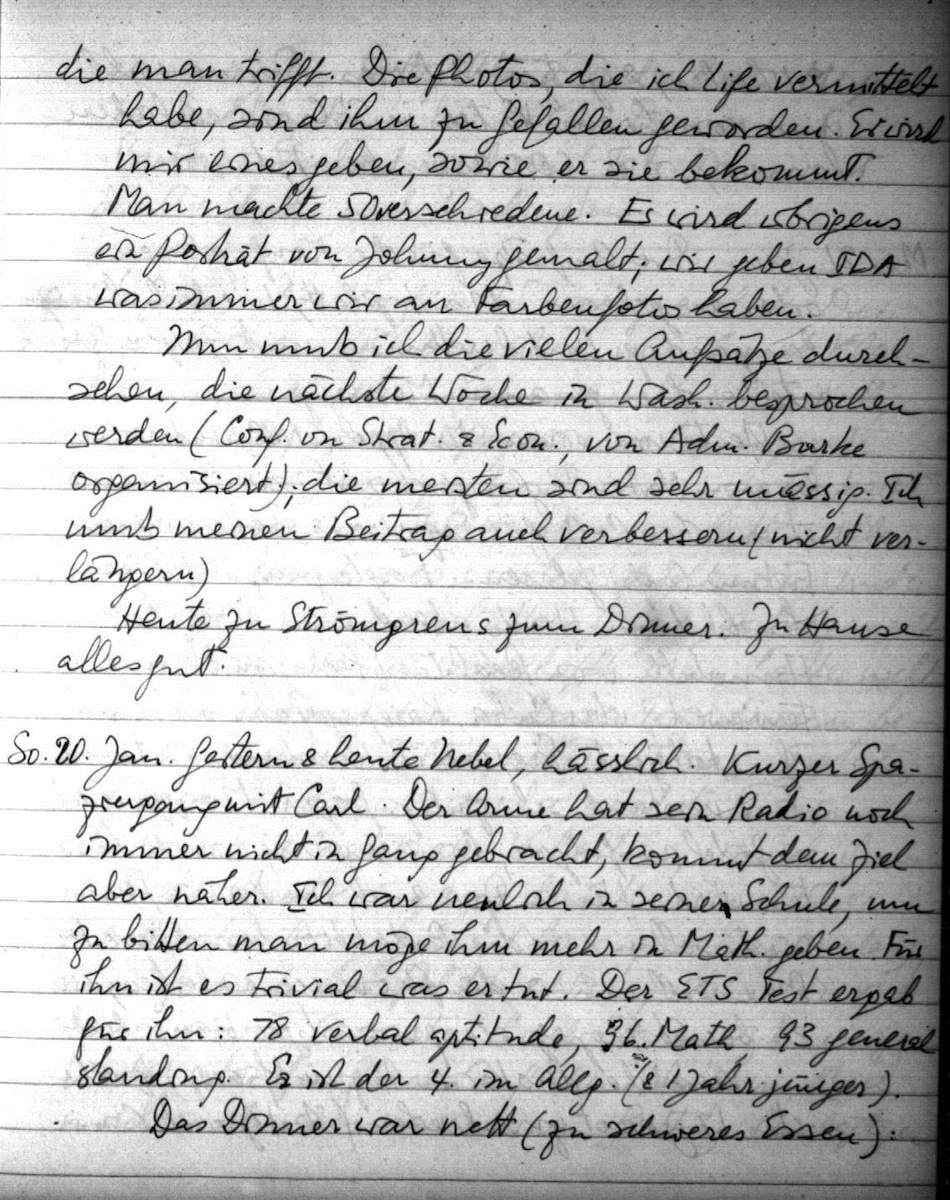 die man trifft. Die Photos, die ich Life vermittelt
habe, sind ihm zu Gefallen geworden. Er wird
mir eines geben, sowie er sie bekommt.
Man machte 50 verschiedene. Es wird übrigens
ein Porträt von Johnny gemalt; wir geben IDA
was immer wir an Farbenfotos haben.
Nun muß ich die vielen Aufsätze durch-
sehen, die nächste Woche in Wash. besprochen
werden (Conf. on Strat. & Econ., von Adm. Burke
organisiert); die meisten sind sehr mässig. Ich
muß meinen Beitrag auch verbessern (nicht ver-
längern)
Heute zu Strömgrens zum Dinner. Zu Hause
alles gut.
So. 20. Jan. Gestern & heute Nebel, hässlich. Kurzer Spa-
ziergang mit Carl. Der Arme hat sein Radio noch
immer nicht in Gang gebracht, kommt dem Ziel
aber näher. Ich war neulich in seiner Schule, um
zu bitten man möge ihm mehr in Math. geben. Für
ihn ist es trivial was er tut. Der ETS Test ergab
für ihn: 78 verbal aptitude, 96 Math, 93 general
standing. Er ist der 4. im Allg. (& 1 Jahr jünger).
Das Dinner war nett (zu schweres Essen):